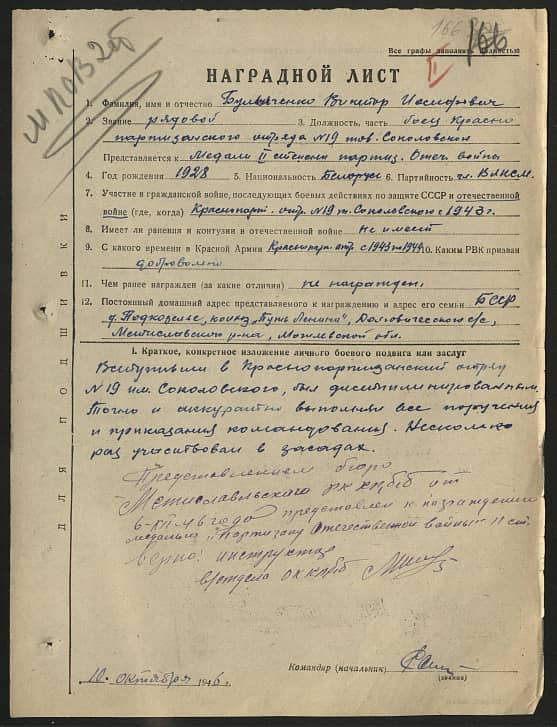 166
166
Все графы заполнять полностью
II
НАГРАДНОЙ ЛИСТ
1. Фамилия, имя и отчество Виктор Иосифович
2. Звание рядовой 3. Должность, часть боец Красно
партизанского отряда №19 тов. Соколовского
Представляется к Медали II степени партиз. Отеч. войны
4. Год рождения 1928 5. Национальность Белорус 6. Партийность чл. ВЛКСМ.
7. Участие в гражданской войне, последующих боевых действиях по защите СССР и отечественной
войне (где, когда) Краснопарт. отр. №19 т. Соколовского с 1943 г.
8. Имеет ли ранения и контузии в отечественной войне Не имеет
9. С какого времени в Красной Армии Краснопарт. отр. с 1943 1944 10. Каким РВК призван
добровольно
11. Чем ранее награжден (за какие отличия) не награжден.
12. Постоянный домашний адрес представляемого к награждению и адрес его семьи БССР
д. колхоз „Путь Ленина", с/с,
Мстиславского р-на, Могилевской обл.
I. Краткое, конкретное изложение личного боевого подвига или заслуг
Вступивши в Краснопартизанский отряд
№19 им. Соколовского, был дисциплинированным.
Точно и аккуратно выполнял все поручения
и приказания командования. Несколько
раз участвовал в засадах.
Представлением бюро
Мстиславльского РК КП(б)Б от
6-XII-46 года представлен к награждению
медалью „Партизану Отечественной войны" II ст.
верно: инструктор
КП(б)Б
Командир (начальник)
(звание)
10. октября 1946 г.
ДЛЯ ПОДШИВКИ